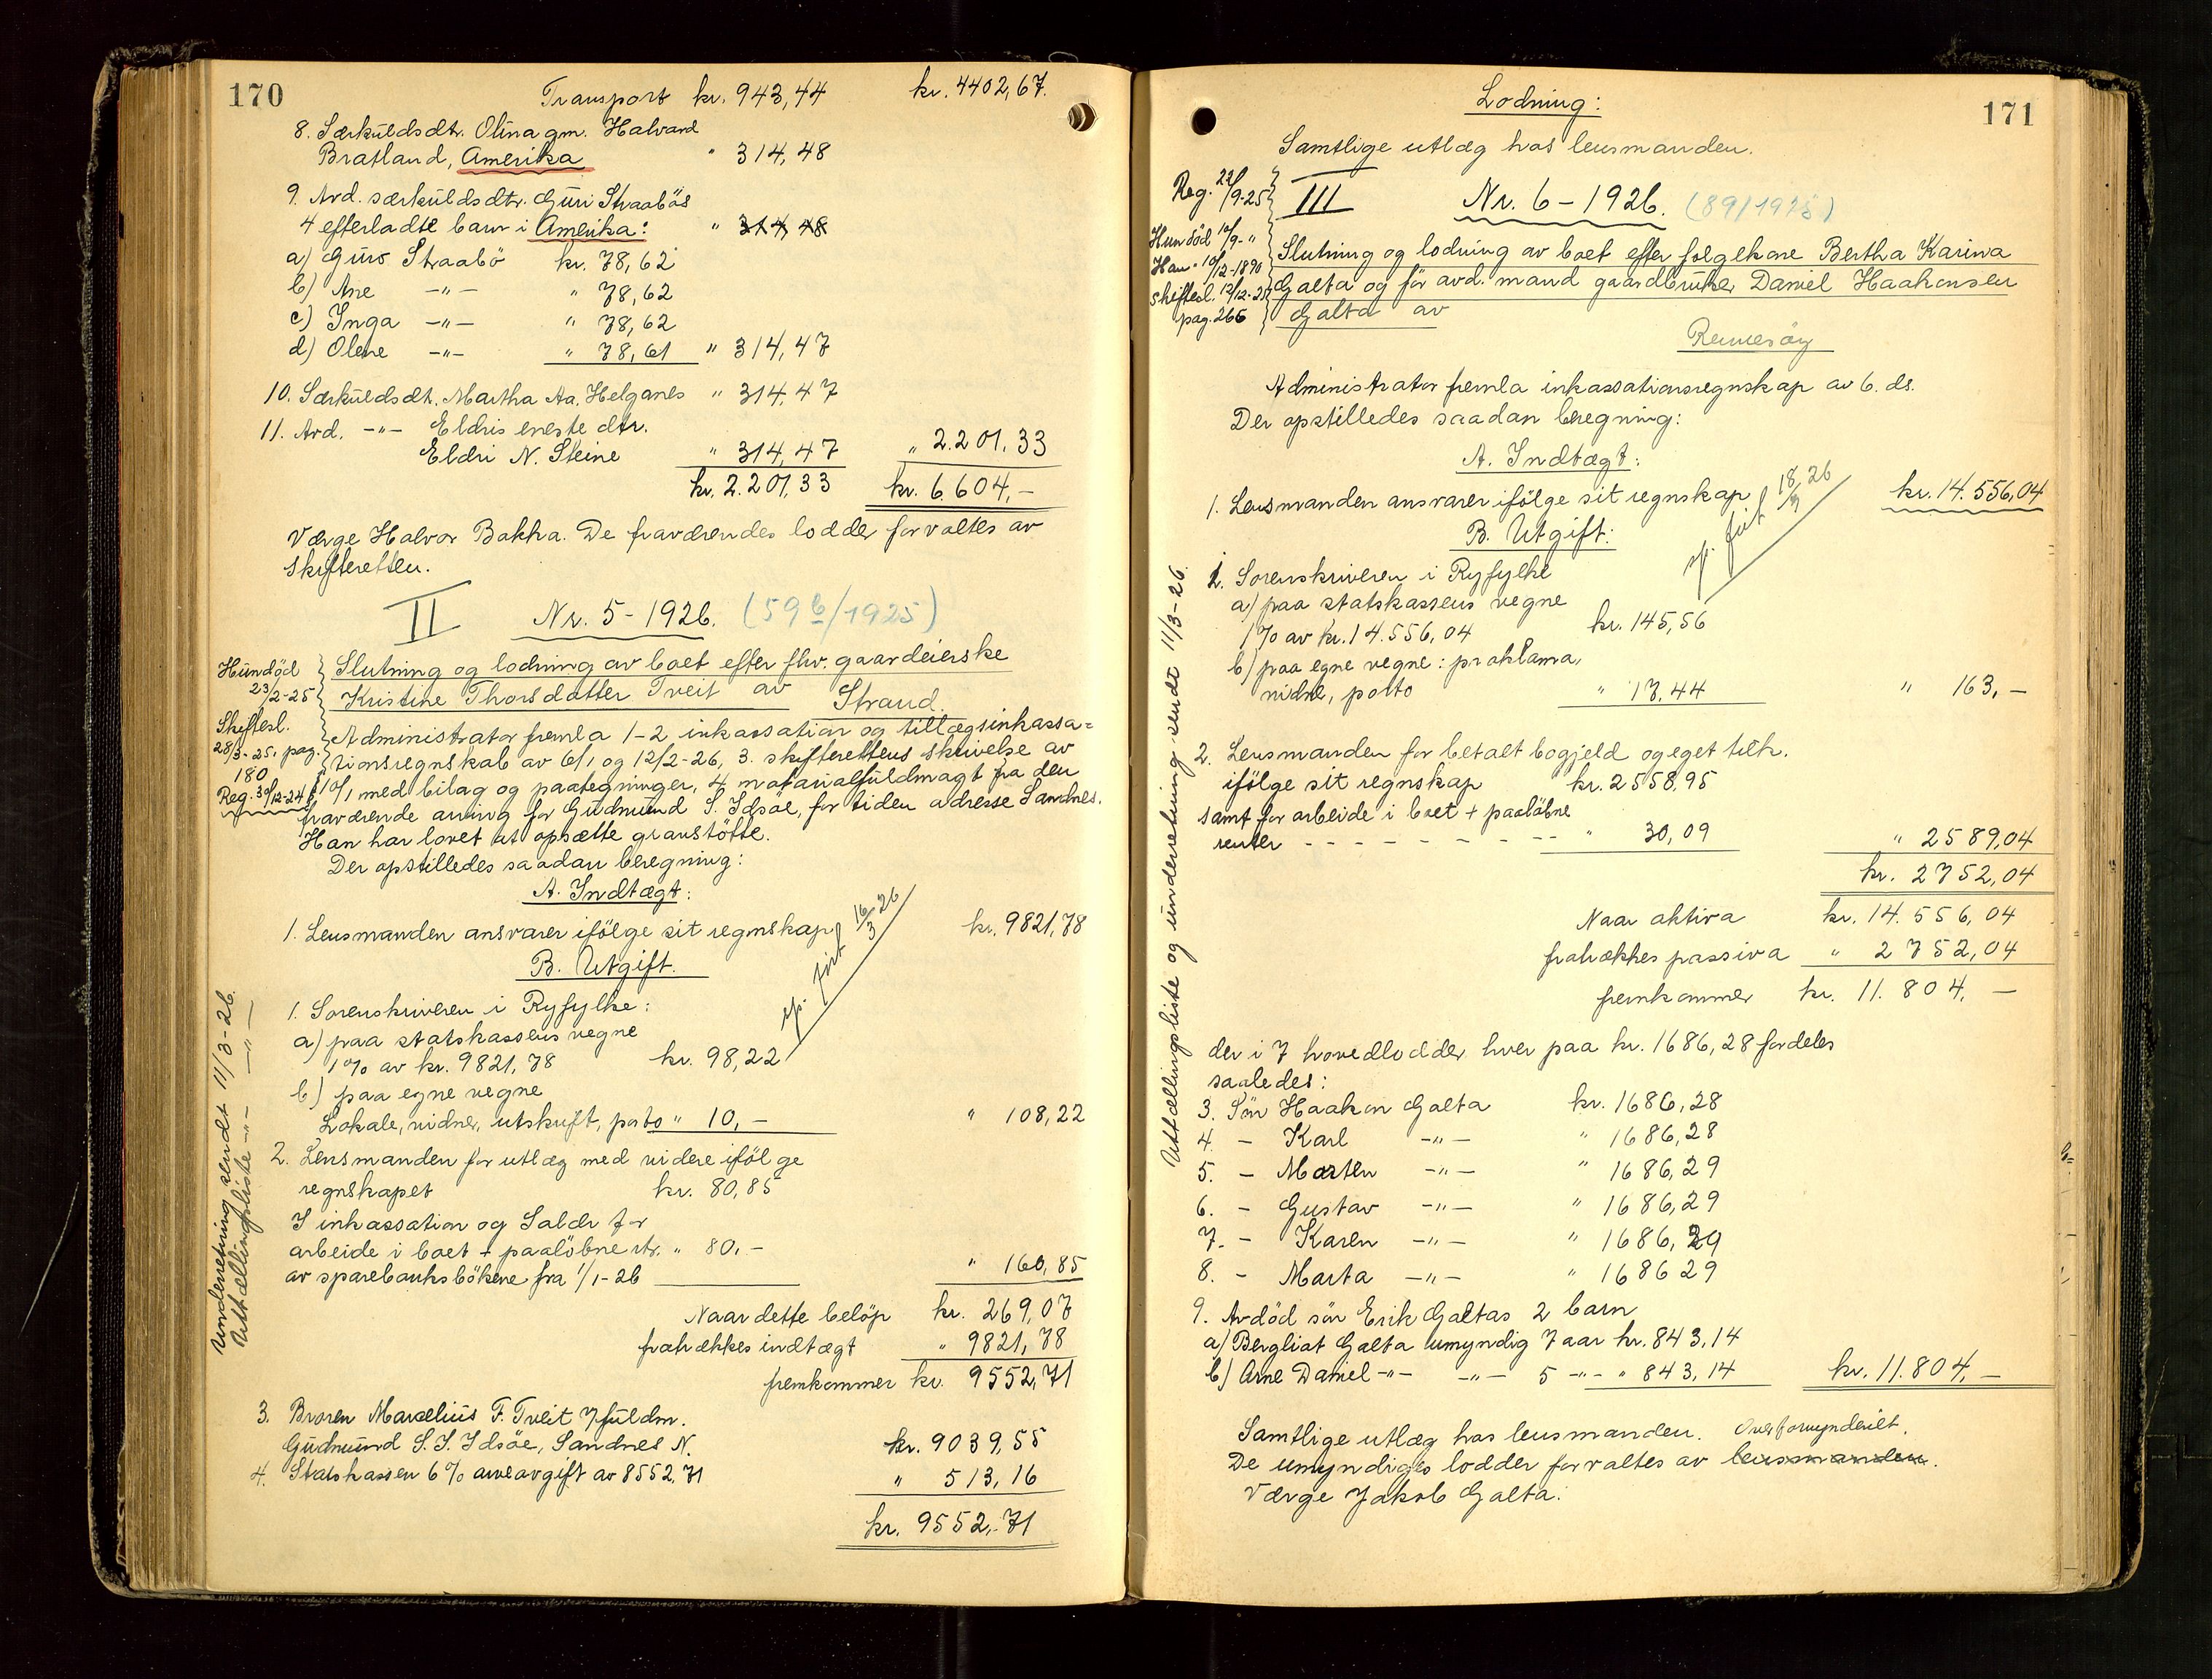 170
Transport kr. 943,44 kr. 4402,67.
8. Særkuldsdtr. Olina gm. Halvard
Bratland, Amerika " 314,48
9. Avd. særkuldsdtr. Guri Straabös
4 efterladte barn i Amerika: " 314,48
a) Guro Straabö kr. 78,62
b) Ane -"- " 78,62
c) Inga -"- " 78,62
d) Olene -"- " 78,61 " 314,47
10. Særkuldsdt. Martha Aa. Helganes " 314,47
11. Avd. -"- Eldris eneste dtr.
Eldri N. Steine " 314,47 " 2.201,33
kr. 2.201,33 kr. 6.604,-
Værge Halvor Bakka. De fraværendes lodder forvaltes av
skifteretten.
II Nr. 5 - 1926. (59b/1925)
Hun död
23/2-25
Skiftesl.
28/3-25, pag.
180
Reg. 30/12-24
Slutning og lodning av boet efter fhv. gaardeierske
Kristine Thorsdatter Tveit av Strand.
Administrator fremla 1-2 inkassation og tillægsinkassa=
tionsregnskab av 6/1 og 12/2-26, 3. skifterettens skrivelse av
10/1 med bilag og paategninger, 4 notarialfuldmagt fra den
fraværende arving for Gudmund S. Idsöe, for tiden adresse Sandnes.
Han har lovet at opsætte gravstötte.
Der opstilledes saadan beregning:
A. Indtægt:
1. Lensmanden ansvarer ifölge sit regnskap kr. 9821,78
sp. fört 16/3 26
B. Utgift.
1. Sorenskriveren i Ryfylke:
a) paa statskassens vegne
1% av kr. 9821,78 kr. 98,22
b) paa egne vegne
Lokale, vidner, utskrift, porto " 10,- " 108,22
2. Lensmanden for utlæg med videre ifölge
regnskapet kr. 80,85
I inkassation og Salær for
arbeide i boet + paalöbne rtr. " 80,-
av sparebanksbökene fra 1/1-26 " 160,85
Naar dette belöp kr. 269,07
fratrækkes indtægt " 9821,78
fremkommer kr. 9552,71
3. Broren Marselius F. Tveit v/fuldm.
Gudmund S. S. Idsöe, Sandnes N. kr. 9039,55
4. Statskassen 6% arveavgift av 8552,71 " 513,16
kr. 9552,71
Underretning sendt 11/3-26.
Uttællingsliste -"- -"-
171
Lodning:
Samtlige utlæg hos lensmanden.
Reg. 22/9-25
Hun död 10/9-"
Han -" 10/12-1890
Skiftesl. 12/12-25
pag. 266
III Nr. 6 - 1926. (89/1925)
Slutning og lodning av boet efter folgekone Bertha Karina
Galta og för avd. mand gaardbruker Daniel Haakonsen
Galta av
Rennesöy
Administrator fremla inkassationsregnskap av 6. ds.
Der opstilledes saadan beregning:
A. Indtægt:
1. Lensmanden ansvarer ifölge sit regnskap kr. 14.556,04
sp. fört 18/3 26
B. Utgift:
1. Sorenskriveren i Ryfylke
a) paa statskassens vegne
1% av kr. 14.556,04 kr. 145,56
b) paa egne vegne: proklama,
vidne, porto " 17,44 " 163,-
2. Lensmanden for betalt bogjeld og eget tilk.
ifölge sit regnskap kr. 2558,95
samt for arbeide i boet + paalöbne
renter - - - - - - - - " 30,09 " 2589,04
kr. 2752,04
Naar aktiva kr. 14.556,04
fratrækkes passiva " 2752,04
fremkommer kr. 11.804,-
der i 7 hovedlodder hver paa kr. 1686,28 fordeles
saaledes:
3. Sön Haakon Galta kr. 1686,28
4. - Karl -"- " 1686,28
5. - Marten -"- " 1686,29
6. - Gustav -"- " 1686,29
7. - Karen -"- " 1686,29
8. - Marta -"- " 1686 29
9. Avdöd sön Erik Galtas 2 barn
a) Bergliot Galta umyndig 7 aar kr. 843,14
b) Arne Daniel -"- -"- 5 -"- " 843,14 kr. 11.804,-
Samtlige utlæg hos lensmanden. Overformynderiet.
De umyndiges lodder forvaltes av lensmanden.
Værge Jakob Galta.
Uttællingsliste og underretning sendt 11/3-26.